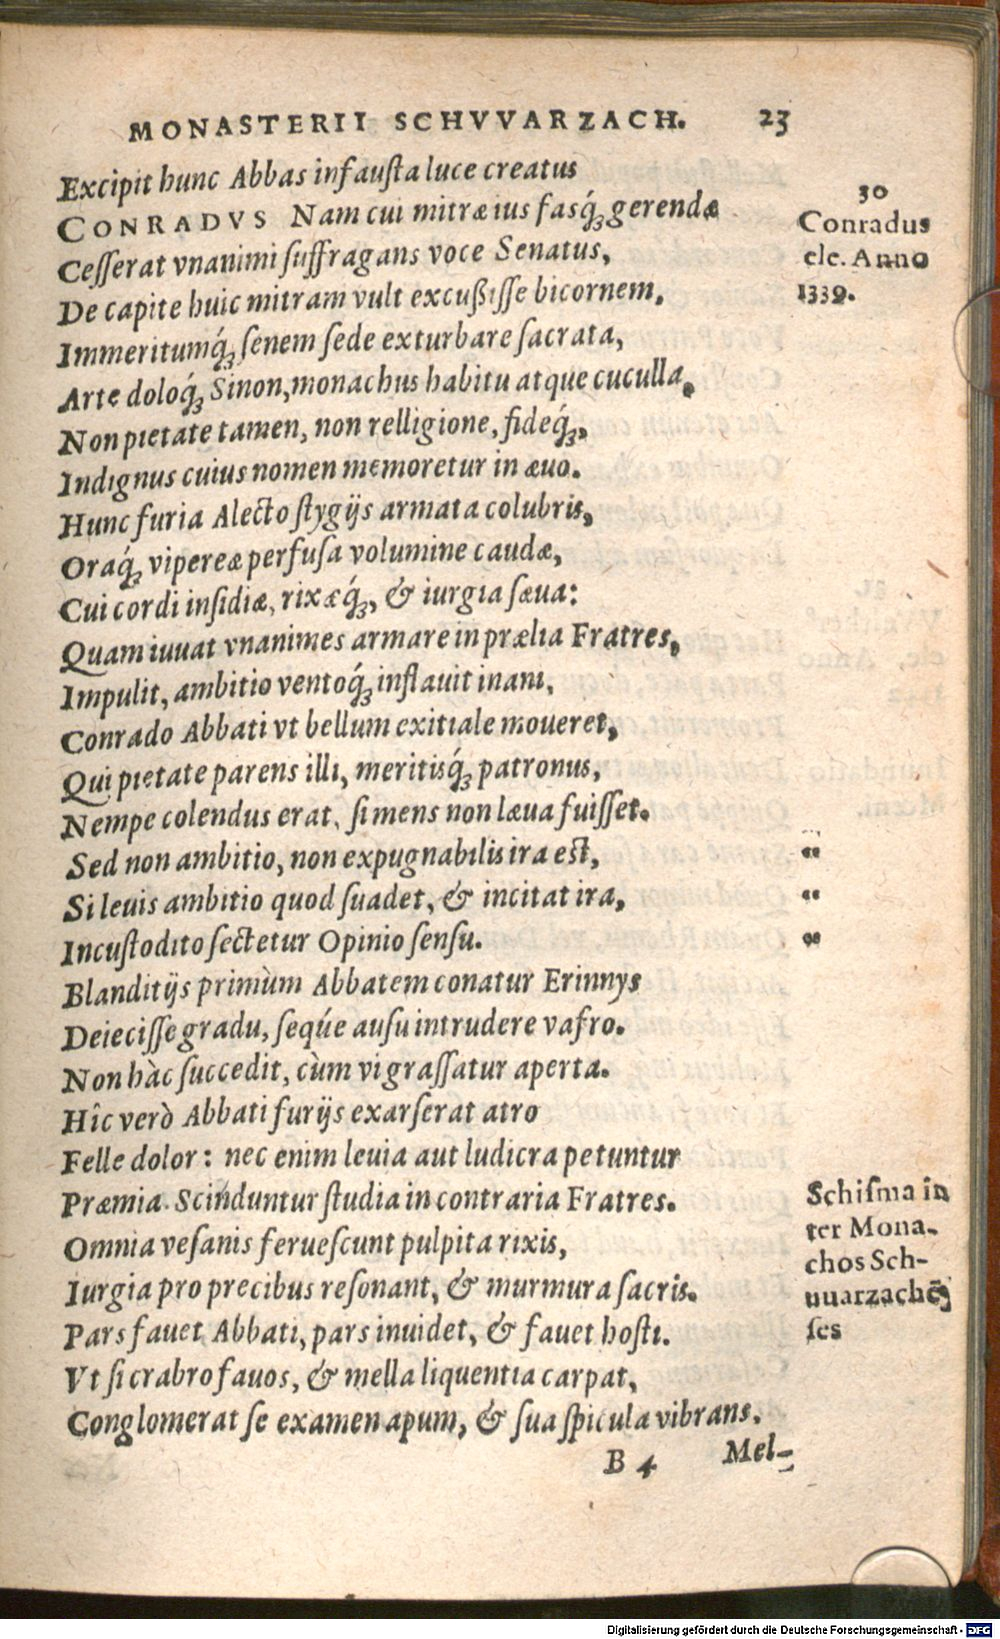 MONASTERII SCHVVARZACH. 23
Excipit hunc Abbas infausta luce creatus
CONRADVS Nam cui mitræ ius fasq́ꝫ gerendæ
Cesserat vnanimi suffragans voce Senatus,
De capite huic mitram vult excußisse bicornem,
Immeritumq́ꝫ senem sede exturbare sacrata,
Arte doloq́ꝫ Sinon, monachus habitu atque cuculla,
Non pietate tamen, non relligione, fideq́ꝫ,
Indignus cuius nomen memoretur in æuo.
Hunc furia Alecto stygijs armata colubris,
Oraq́ꝫ vipereæ perfusa volumine caudæ,
Cui cordi insidiæ, rixæq́ꝫ, & iurgia sæua:
Quam iuuat vnanimes armare in prælia Fratres,
Impulit, ambitio ventoq́ꝫ inflauit inani,
Conrado Abbati vt bellum exitiale moueret,
Qui pietate parens illi, meritisq́ꝫ patronus,
Nempe colendus erat, si mens non læua fuisset.
Sed non ambitio, non expugnabilis ira est, “
Si leuis ambitio quod suadet, & incitat ira, “
Incustodito sectetur Opinio sensu. “
Blanditijs primùm Abbatem conatur Erinnys
Deiecisse gradu, seqúe ausu intrudere vafro.
Non hàc succedit, cùm vi grassatur aperta.
Hîc verò Abbati furijs exarserat atro
Felle dolor: nec enim leuia aut ludicra petuntur
Præmia. Scinduntur studia in contraria Fratres.
Omnia vesanis feruescunt pulpita rixis,
Iurgia pro precibus resonant, & murmura sacris.
Pars fauet Abbati, pars inuidet, & fauet hosti.
Vt si crabro fauos, & mella liquentia carpat,
Conglomerat se examen apum, & sua spicula vibrans.
B 4 Mel-
30
Conradus
ele. Anno
1339.
Schisma in
ter Mona-
chos Sch-
uuarzachẽ
ses
Digitalisierung gefördert durch die Deutsche Forschungsgemeinschaft - DFG